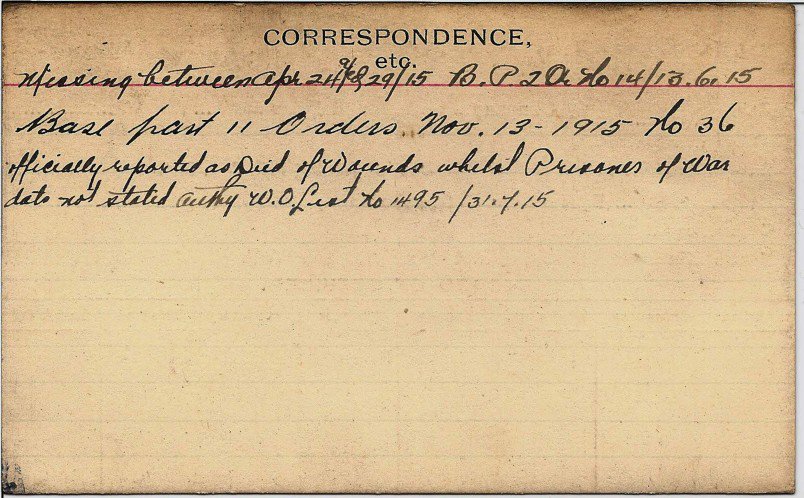 CORRESPONDENCE,
etc.
Missing between Apr 24 & 29/15 B. P. 2 Or. No 14/13.6.15
Base part 11 Orders. Nov. 13 - 1915 No 36
officially reported as Died of Wounds whilst Prisoner of War
date not stated Authy W.O. List No 1495 /31.7.15